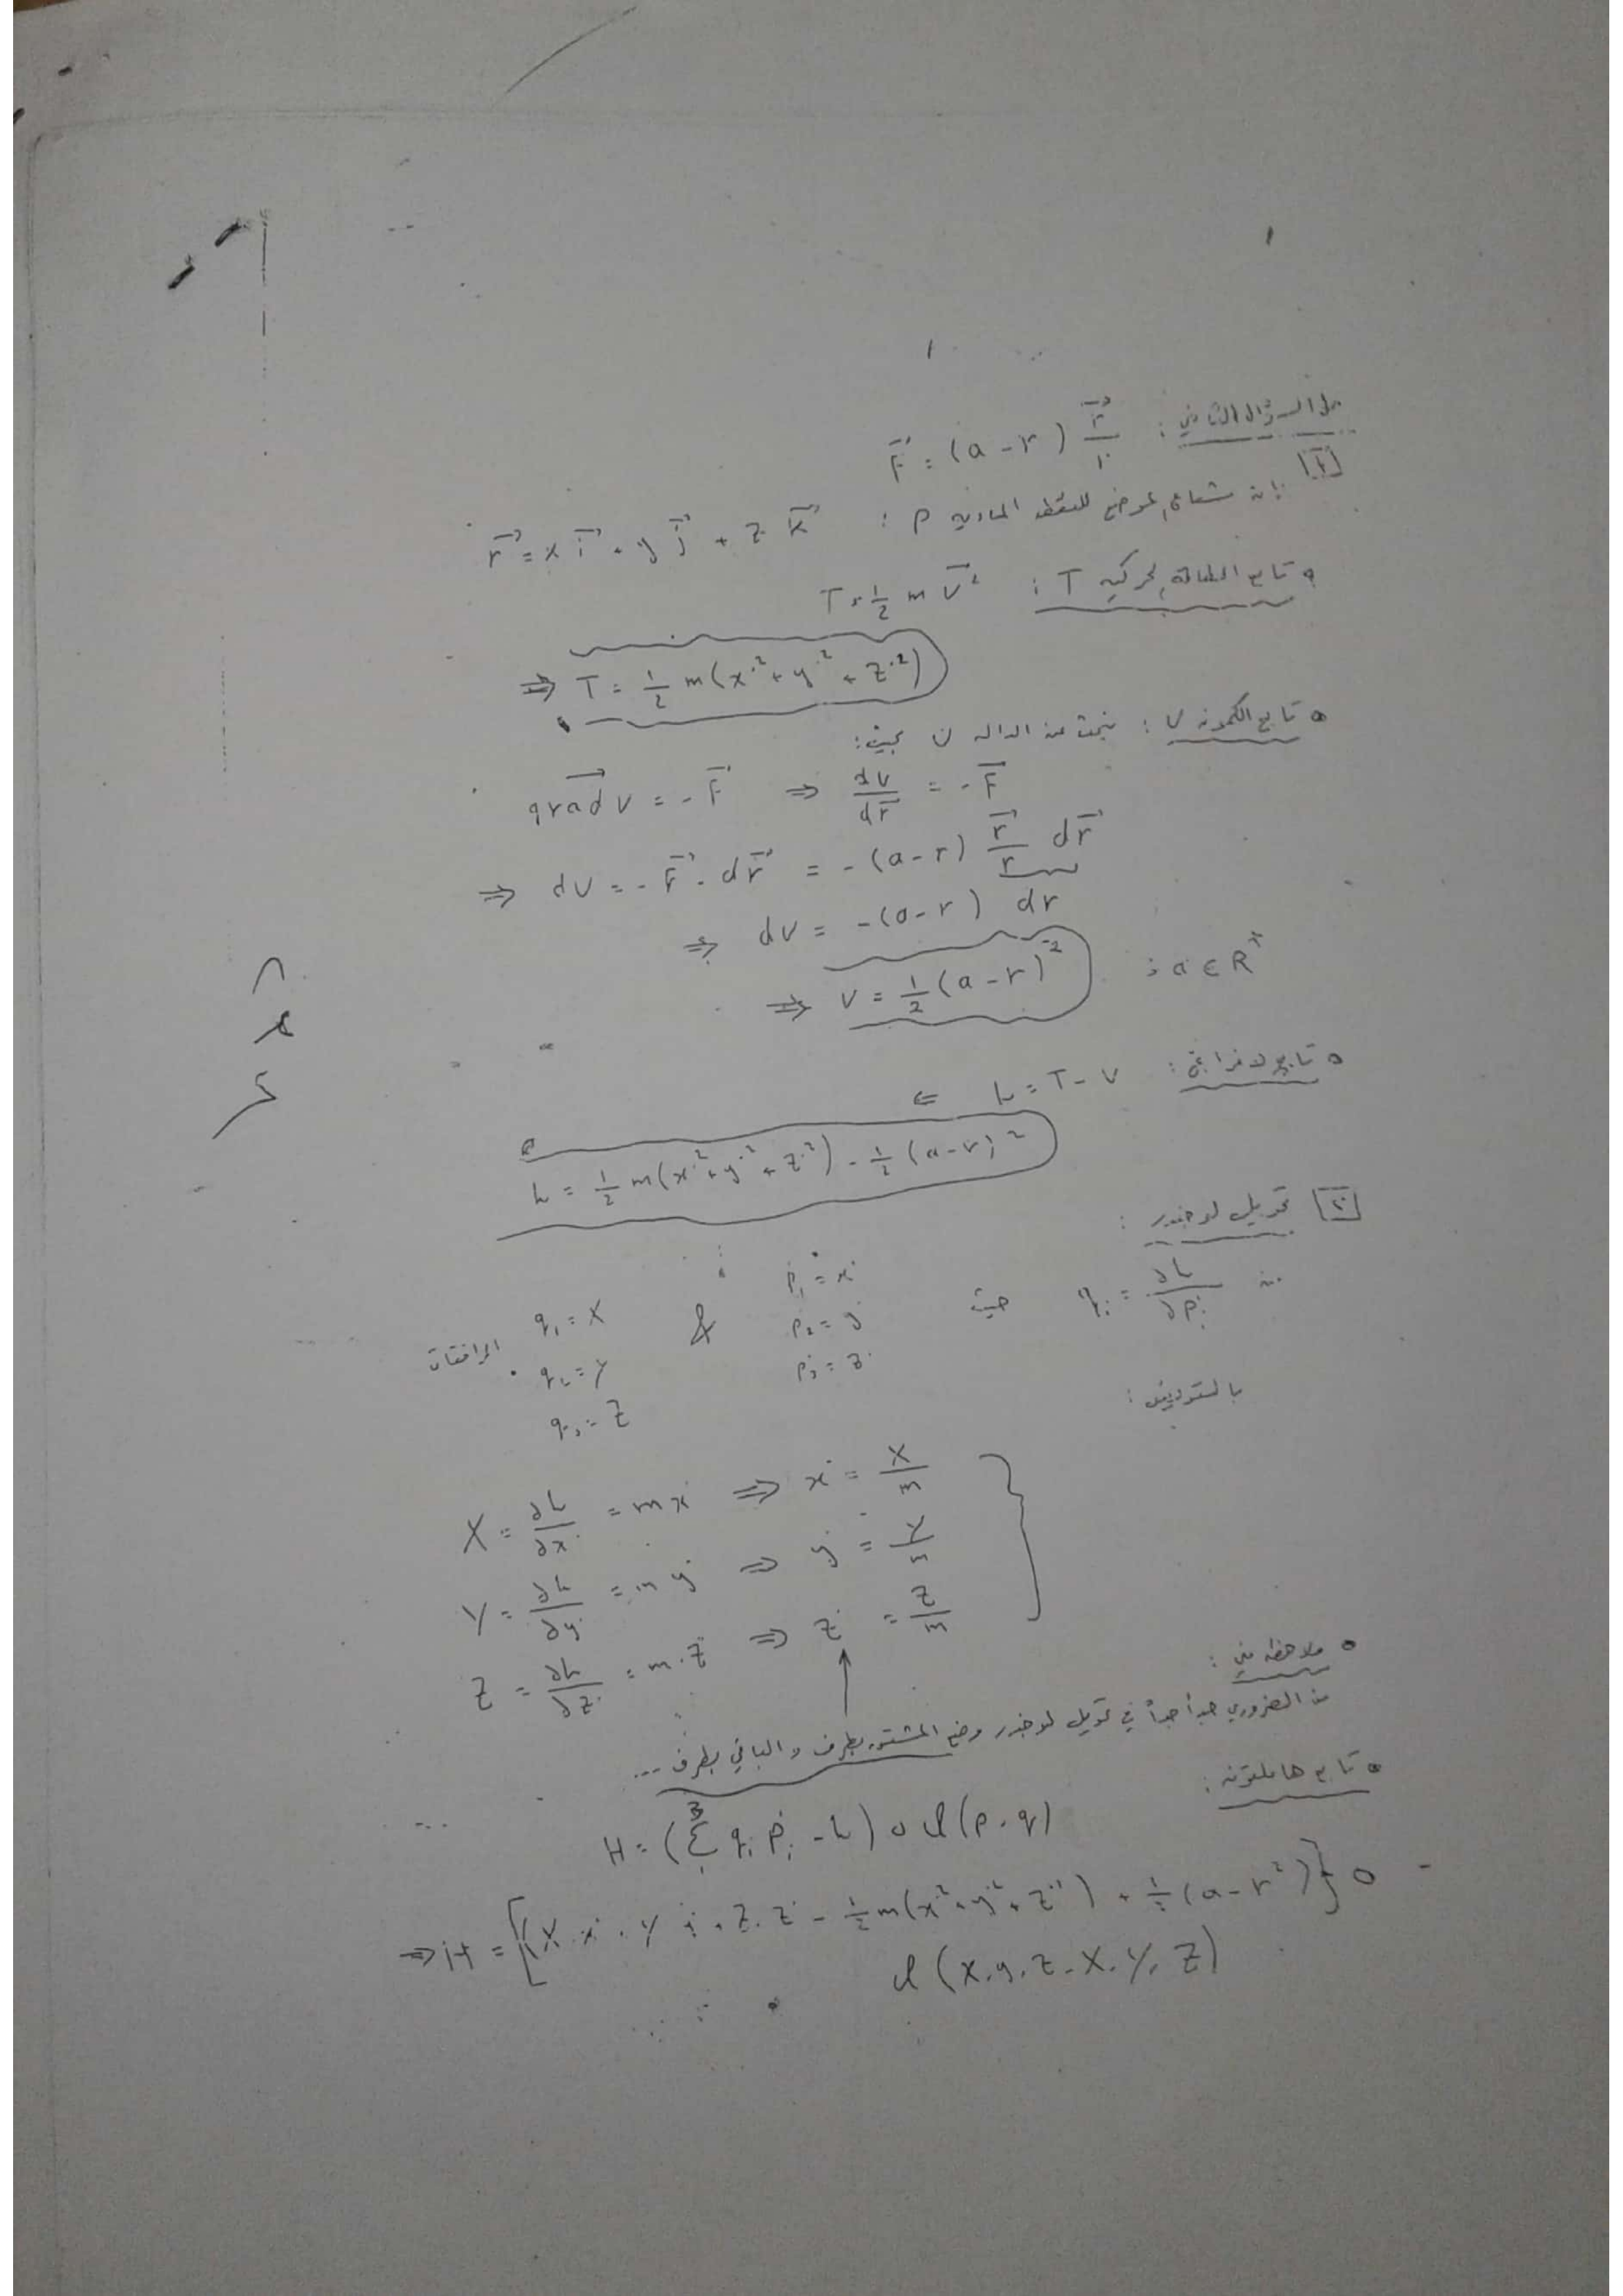 حل السؤال الثاني : F⃗ = (a - r) r⃗/r
[1] إن شعاع الموضع للنقطة المادية P : r⃗ = x i⃗ + y j⃗ + z k⃗
• تابع الطاقة الحركية T : T = 1/2 m v⃗²
⇒ T = 1/2 m(x˙² + y˙² + z˙²)
• تابع الكمون V : نبحث عن الدالة V بحيث :
grad V = - F⃗ ⇒ dV/dr⃗ = - F⃗
⇒ dV = - F⃗ . dr⃗ = -(a - r) r⃗/r dr⃗
⇒ dV = -(a - r) dr
⇒ V = 1/2 (a - r)² ; a ∈ R*
• تابع لاغرانج : L = T - V ⇐
L = 1/2 m(x˙² + y˙² + z˙²) - 1/2 (a - r)²
[2] تحويل لوجندر :
من qᵢ = ∂L/∂ṗᵢ حيث ṗ₁ = x˙ & q₁ = X المرافقات
ṗ₂ = y˙ q₂ = Y
ṗ₃ = z˙ q₃ = Z
بالتعويض :
X = ∂L/∂x˙ = m x˙ ⇒ x˙ = X/m
Y = ∂L/∂y˙ = m y˙ ⇒ y˙ = Y/m
Z = ∂L/∂z˙ = m z˙ ⇒ z˙ = Z/m
• ملاحظة :
من الضروري جداً جداً في تحويل لوجندر وضع المشتق بطرف والباقي بطرف ...
• تابع هاملتون :
H = (Σ³ qᵢ ṗᵢ - L) o φ(p, q)
⇒ H = [X x˙ + Y y˙ + Z z˙ - 1/2 m(x˙² + y˙² + z˙²) + 1/2 (a - r²)] o
φ(x, y, z, X, Y, Z)